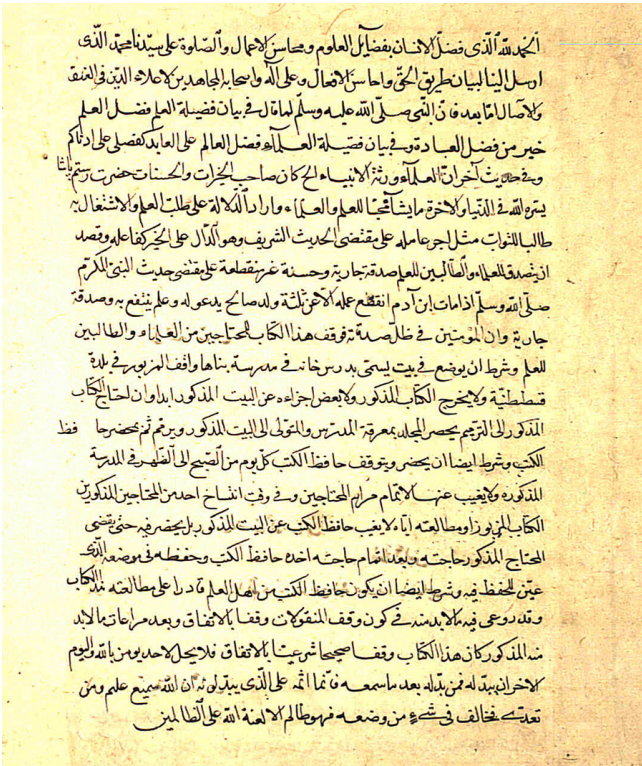 الحمد لله الذى فضل الانسان بفضايل العلوم ومحاسن الاعمال والصلوة على سيدنا محمد الذى
ارسل الينا لبيان طريق الحق واحاسن الافعال وعلى آله واصحابه المجاهدين لاعلاء الدين فى الغدو
والآصال اما بعد فان النبى صلى الله عليه وسلم لما قال فى بيان فضيلة العلم فضل العلم
خير من فضل العبادة وفى بيان فضيلة العلماء فضل العالم على العابد كفضلى على ادناكم
وفى حديث آخر ان العلماء ورثة الانبياء الخ كان صاحب الخيرات والحسنات حضرت رستم پاشا
يسره الله فى الدنيا والاخرة ما يشا محبا للعلم والعلماء واراد الدلالة على طلب العلم والاشتغال به
طالبا لثواب مثل اجر عامله على مقتضى الحديث الشريف وهو الدال على الخير كفاعله وقصد
ان يتصدق للعلماء والطالبين للعلم صدقة جارية وحسنة غير منقطعة على مقتضى حديث النبى المكرم
صلى الله وسلم اذا مات ابن آدم انقطع عمله الا عن ثلثة ولد صالح يدعو له وعلم ينتفع به وصدقة
جارية وان المؤمنين فى ظل صدقته فوقف هذا الكتاب للمحتاجين من العلماء والطالبين
للعلم وشرط ان يوضع فى بيت يسمى بدرسخانه فى مدرسة بناها واقف المزبور فى بلدة
قسطنطنية ولا يخرج الكتاب المذكور ولا بعض اجزاءه عن البيت المذكور ابدا وان احتاج الكتاب
المذكور الى الترميم يحضر المجلد بمعرفة المدرس والمتولى الى البيت المذكور ويرمم ثم يحضر حا فظ
الكتب وشرط ايضا ان يحضر ويتوقف حافظ الكتب كل يوم من الصبح الى الظهر فى المدرسة
المذكوره ولا يغيب عنها لاتمام مرام المحتاجين وفى وقت انتساخ احد من المحتاجين المذكورين
الكتاب المزبور او مطالعته اياه لا يغيب حافظ الكتب عن البيت المذكور بل يحضر فيه حتى يقضى
المحتاج المذكور حاجته وبعد اتمام حاجته اخذه حافظ الكتب وحفظه فى موضعه الذى
عين للحفظ فيه وشرط ايضا ان يكون حافظ الكتب من اهل العلم قادرا على مطالعته هذا الكتاب
وقد روعى فيه ما لابد منه فى كون وقف المنقولات وقفا بالاتفاق وبعد مراعات ما لابد
منه المذكور كان هذا الكتاب وقفا صحيحا شرعيا بالاتفاق فلا يحل لاحد يومن بالله واليوم
الاخر ان يبدله فمن بدله بعد ما سمعه فانما اثمه على الذى يبدلونه ان الله سميع عليم ومن
تعدى فخالف فى شىء من وضعه فهو ظالم الا لعنة الله على الظالمين